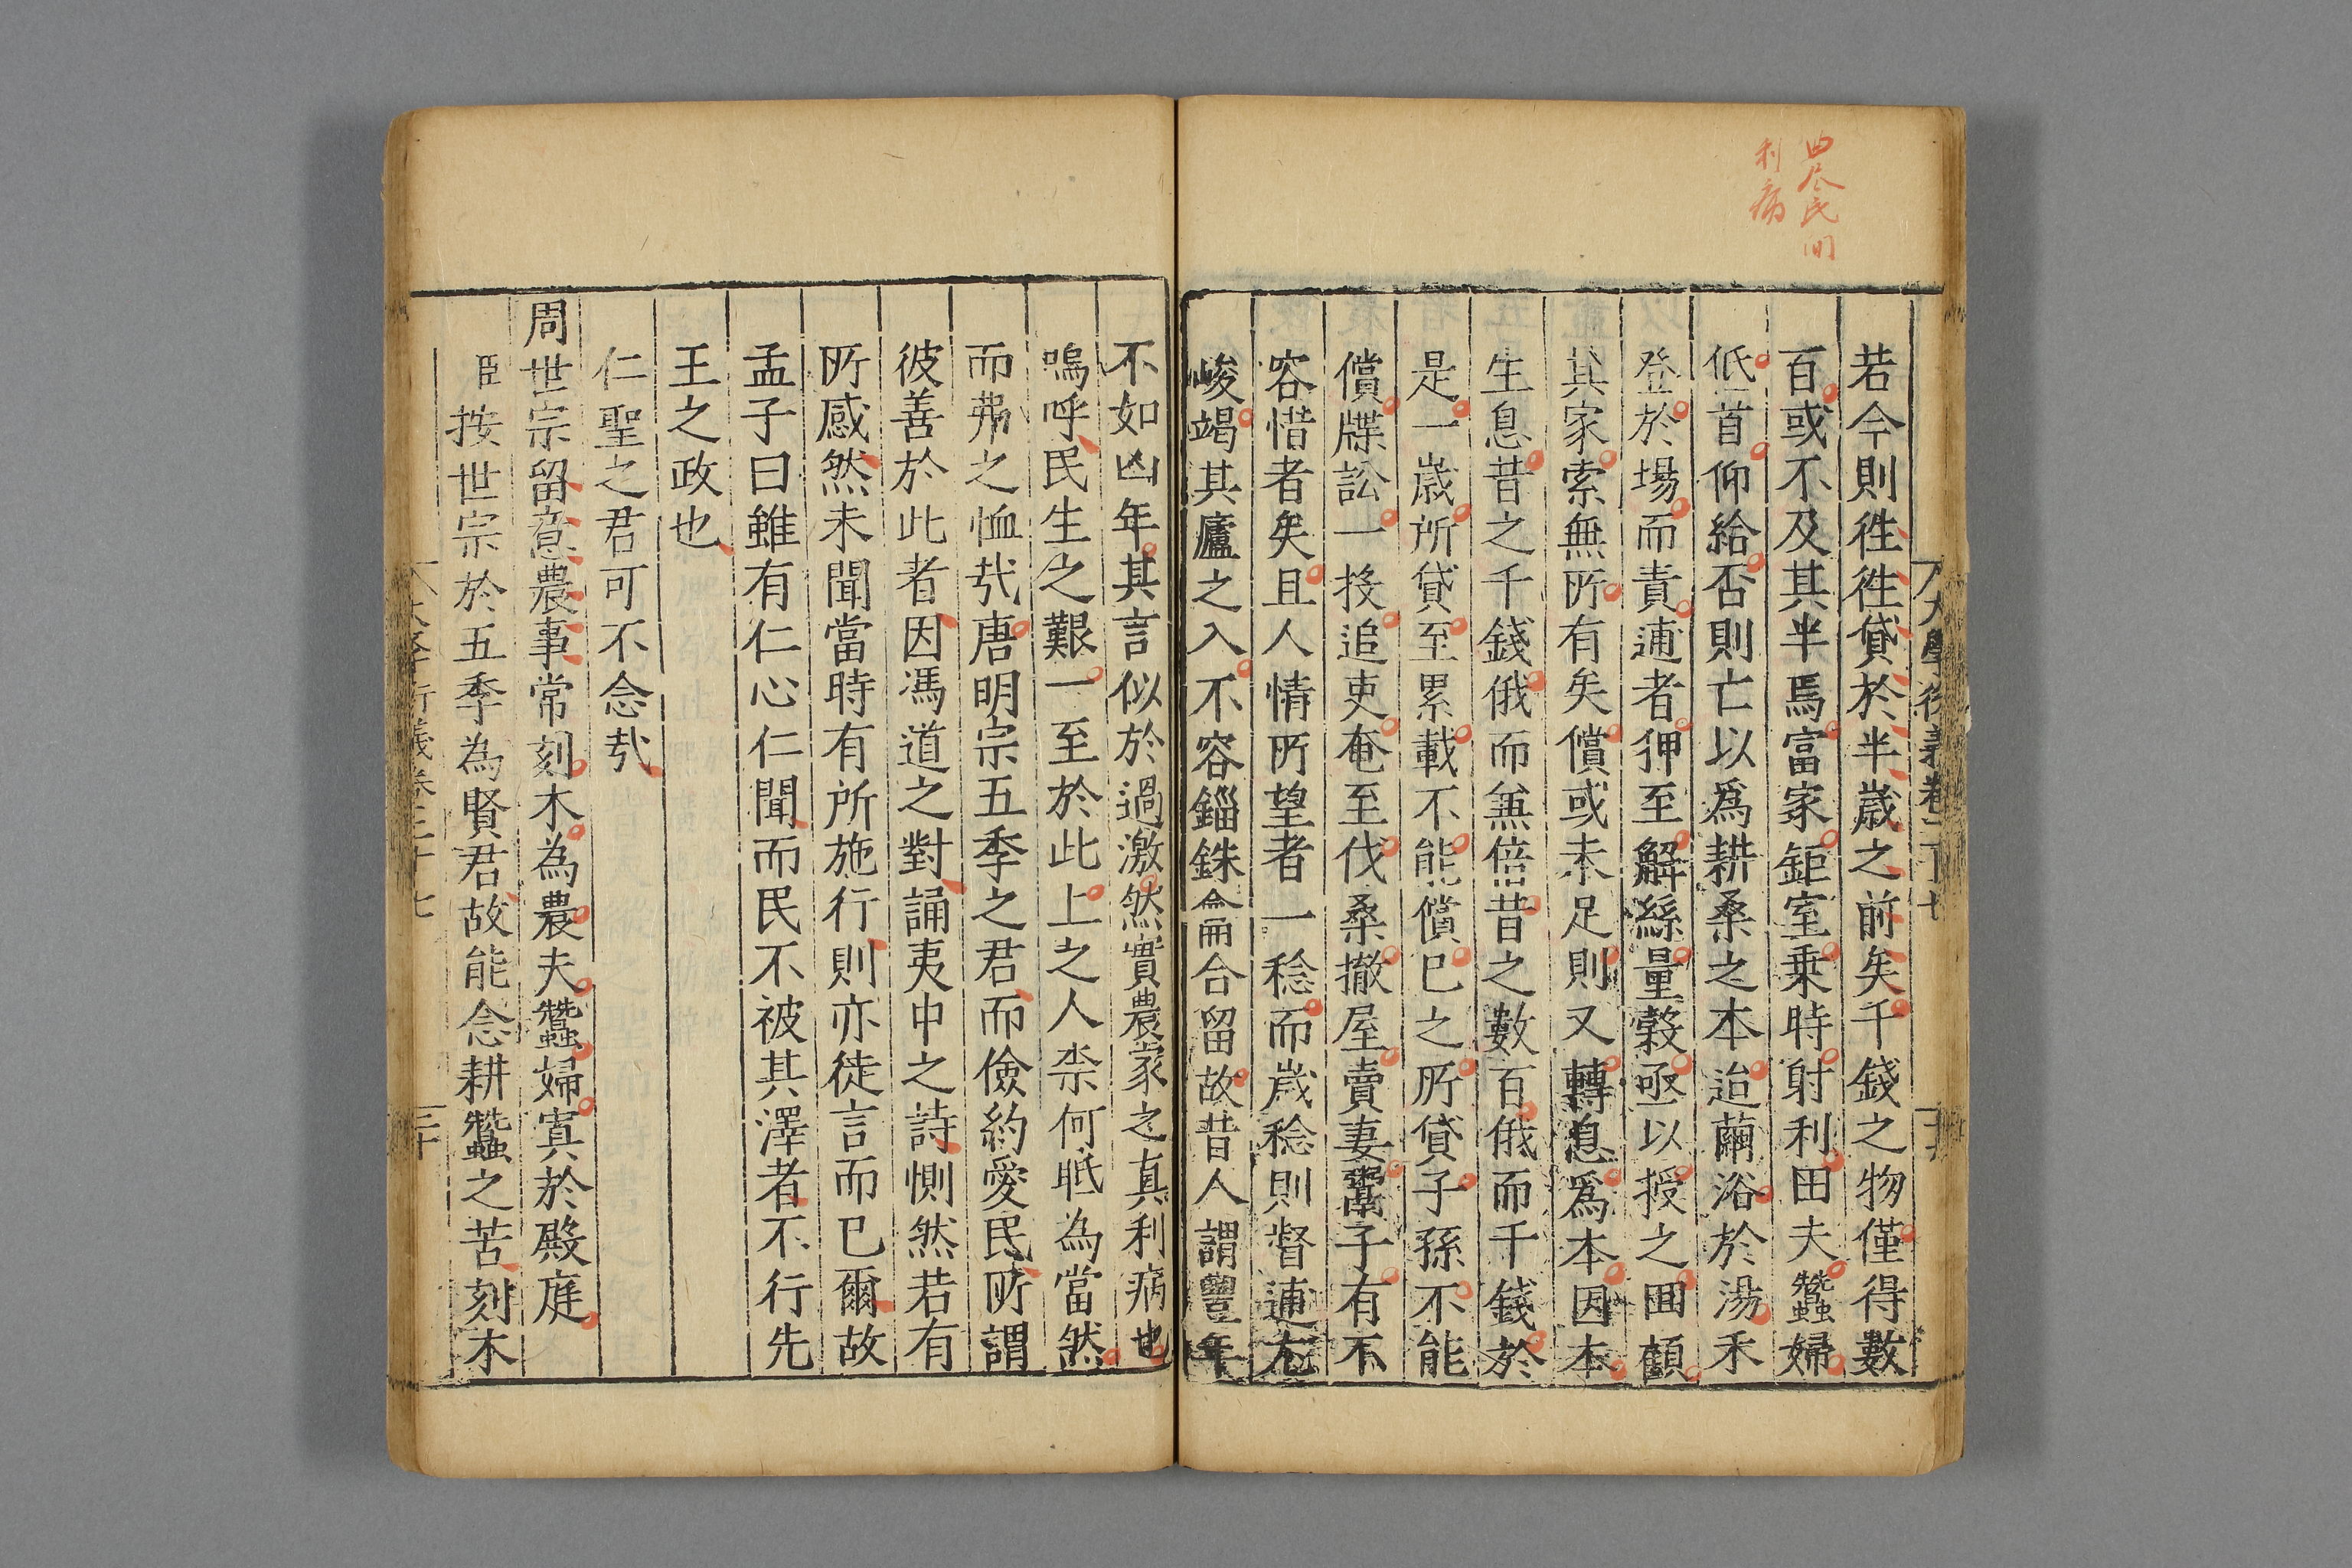 曲尽民间
利病
若今則徃徃貸於半歲之前矣千錢之物僅得數
百或不及其半焉富家鉅室乗時射利田夫蠶婦
低首仰給否則亡以爲耕桑之本迨繭浴於湯禾
登於場而責逋者狎至解絲量穀亟以授之囬顧
其家索無所有矣償或未足則又轉息爲本因本
生息昔之千錢俄而兼倍昔之數百俄而千錢於
是一歲所貸至累載不能償已之所貸子孫不能
償牒訟一投追吏奄至伐桑撤屋賣妻鬻子有不
容惜者矣且人情所望者一稔而歲稔則督逋尤
峻竭其廬之入不容錙銖龠合留故昔人謂豐年
不如凶年其言似於過激然實農家之真利病也
嗚呼民生之艱一至於此上之人柰何眂為當然
而弗之恤㢤唐明宗五季之君而儉約愛民所謂
彼善於此者因馮道之對誦夷中之詩惻然若有
所感然未聞當時有所施行則亦徒言而已爾故
孟子曰雖有仁心仁聞而民不被其澤者不行先
王之政也
仁聖之君可不念㢤
周世宗留意農事常刻木為農夫蠶婦寘於殿庭
臣按世宗於五季為賢君故能念耕蠶之苦刻木